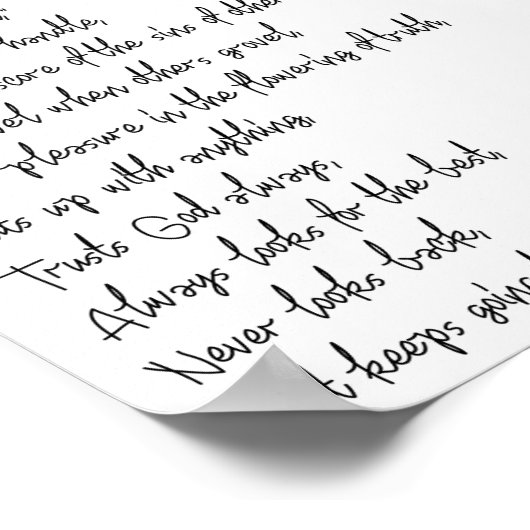 handle,
score of the sins of other
vel when others grovel,
pleasure in the flowering of truth,
ts up with anything,
Trusts God always,
Always looks for the best,
Never looks back,
t keeps going